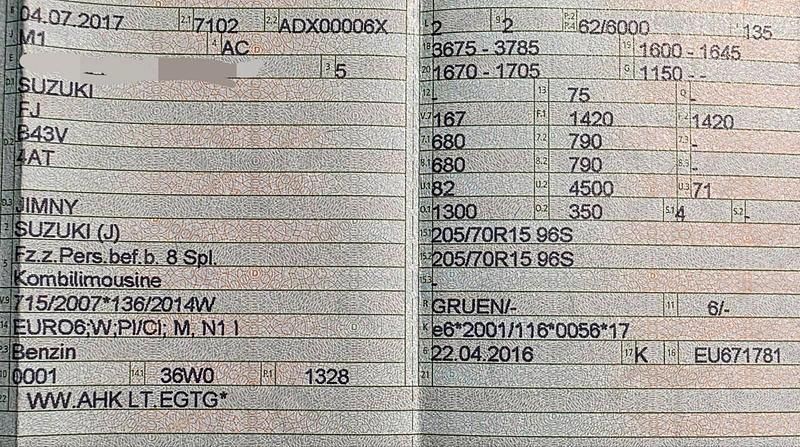 B 04.07.2017 2.1 7102 2.2 ADX00006X
J M1 4 AC
E 3 5
D.1 SUZUKI
FJ
D.2 B43V
4AT
D.3 JIMNY
2 SUZUKI (J)
5 Fz.z.Pers.bef.b. 8 Spl.
Kombilimousine
V.9 715/2007*136/2014W
14 EURO6;W;PI/CI; M, N1 I
P.3 Benzin
10 0001 14.1 36W0 P.1 1328
22 WW.AHK LT.EGTG*
L 2 9 2 P.2 P.4 62/6000 135
18 3675 - 3785 19 1600 - 1645
20 1670 - 1705 G 1150 - -
12 - 13 75 Q -
V.7 167 F.1 1420 F.2 1420
7.1 680 7.2 790 7.3 -
8.1 680 8.2 790 8.3 -
U.1 82 U.2 4500 U.3 71
O.1 1300 O.2 350 S.1 4 S.2 -
15.1 205/70R15 96S
15.2 205/70R15 96S
15.3 -
R GRUEN/- 11 6/-
K e6*2001/116*0056*17
6 22.04.2016 17 K 16 EU671781
21